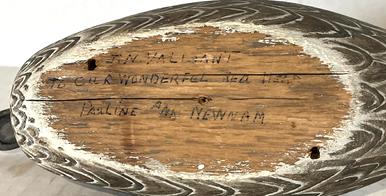 J.N. VALIANT
TO OUR WONDERFUL RED HEAD
PAULINE AND NEWNAM